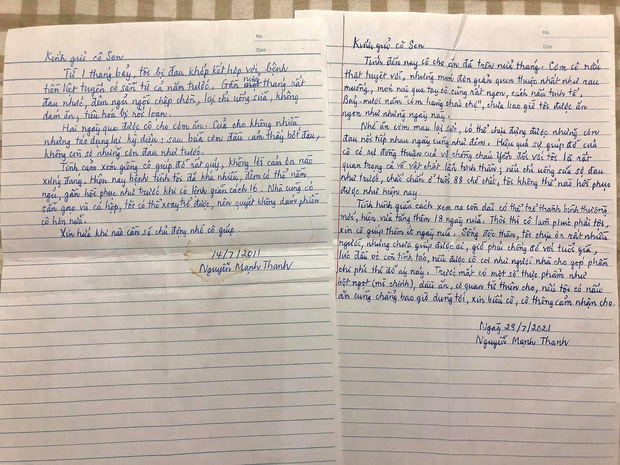 No.
Date
Kính gửi cô Sen
Từ 1 tháng bảy, tôi bị đau khớp kết hợp với bệnh
tiền liệt tuyến có sẵn từ cả năm trước. Gần nửa tháng rất
đau nhức, đêm ngủ ngồi chập chờn, lại chỉ uống sữa, không
dám ăn, tiêu hoá bị rối loạn.
Hai ngày qua được cô cho cơm ăn. Của cho không nhiều
nhưng tác dụng lại kỳ diệu: sau bữa cơm đầu cảm thấy bớt đau,
không còn sợ những cơn đau như trước.
Tình cảm xóm giềng cô giúp đỡ rất quý, không lời cảm ơn nào
xứng đáng. Hiện nay bệnh tình tôi đã khá nhiều, đêm có thể nằm
ngủ, gần hồi phục như trước khi có lệnh giãn cách 16. Nhà cũng có
sẵn gạo và cá hộp, tôi có thể xoay trở được, nên quyết không dám phiền
cô hơn nữa.
Xin hứa khi nào cần sẽ chủ động nhờ cô giúp
14/7/2011
Nguyễn Mạnh Thanh
No.
Date
Kính gửi cô Sen
Tính đến nay cô cho ăn đã trên nửa tháng. Cơm cô nấu
thật tuyệt vời, những món đơn giản quen thuộc nhất như rau
muống, món nào qua tay cô cũng rất ngon, cách nấu tinh tế.
Bảy mươi năm cơm hàng cháo chợ, chưa bao giờ tôi được ăn
ngon như những ngày nay.
Nhờ ăn cơm mau lại sức, có thể chịu đựng được những cơn
đau nối tiếp nhau ngày cũng như đêm. Hiệu quả sự giúp đỡ của
cô có sự đồng thuận của vợ chồng cháu Yến đối với tôi là rất
quan trọng cả về vật chất lẫn tinh thần; nếu chỉ uống sữa sợ đau
như trước, chắc chắn ở tuổi 88 chờ chết, tôi không thể nào hồi phục
được như hiện nay.
Tình hình giãn cách xem ra còn dài có thể trở thành bình thường
mới, hiện vừa tăng thêm 18 ngày nữa. Thời thì cô làm phúc phải tội,
xin cô giúp thêm ít ngày nữa. Sống độc thân, tôi chịu ơn rất nhiều
người, nhưng chưa giúp được ai, giờ phải chống đỡ với tuổi già
lúc đầu vẫn còn tỉnh táo, nếu được cô coi như người nhà cho góp phần
chi phí thì đỡ áy náy. Trước mắt có một số thực phẩm như
bột ngọt (mì chính), dầu ăn, cơ quan từ thiện cho, nếu tôi có nấu
ăn cũng chẳng bao giờ dùng tới, xin biếu cô, cô thông cảm nhận cho.
Ngày 28/7/2021
Nguyễn Mạnh Thanh